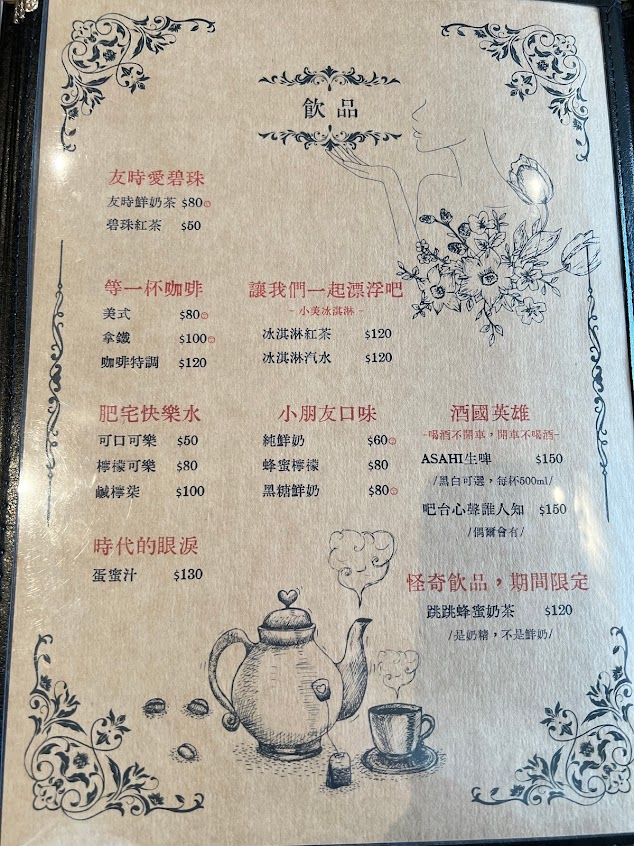 飲品
友時愛碧珠
友時鮮奶茶 $80
碧珠紅茶 $50
等一杯咖啡
美式 $80
拿鐵 $100
咖啡特調 $120
讓我們一起漂浮吧
- 小美冰淇淋 -
冰淇淋紅茶 $120
冰淇淋汽水 $120
肥宅快樂水
可口可樂 $50
檸檬可樂 $80
鹹檸柒 $100
小朋友口味
純鮮奶 $60
蜂蜜檸檬 $80
黑糖鮮奶 $80
酒國英雄
-喝酒不開車，開車不喝酒-
ASAHI生啤 $150
/黑白可選，每杯500ml/
吧台心聲誰人知 $150
/偶爾會有/
時代的眼淚
蛋蜜汁 $130
怪奇飲品，期間限定
跳跳蜂蜜奶茶 $120
/是奶精，不是鮮奶/